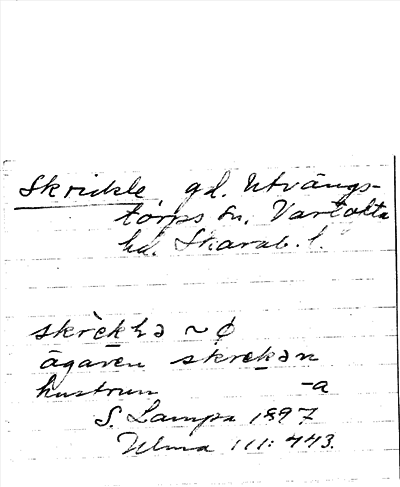 Skrickle, gd. Utvängs-
torps sn. Vartofta
hd. Skarab. l.
skrèkḷə ~ ϕ
ägaren skrekən
hustrun -a
S. Lampa 1897
Ulma 111:443.